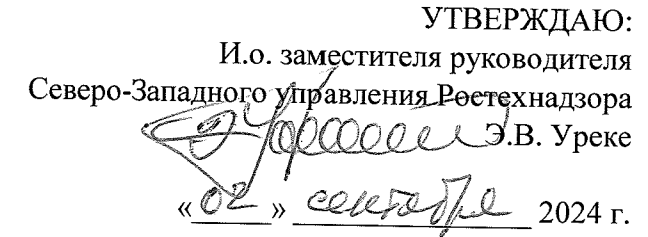 УТВЕРЖДАЮ:
И.о. заместителя руководителя
Северо-Западного управления Ростехнадзора
Э.В. Уреке
«02» сентября 2024 г.